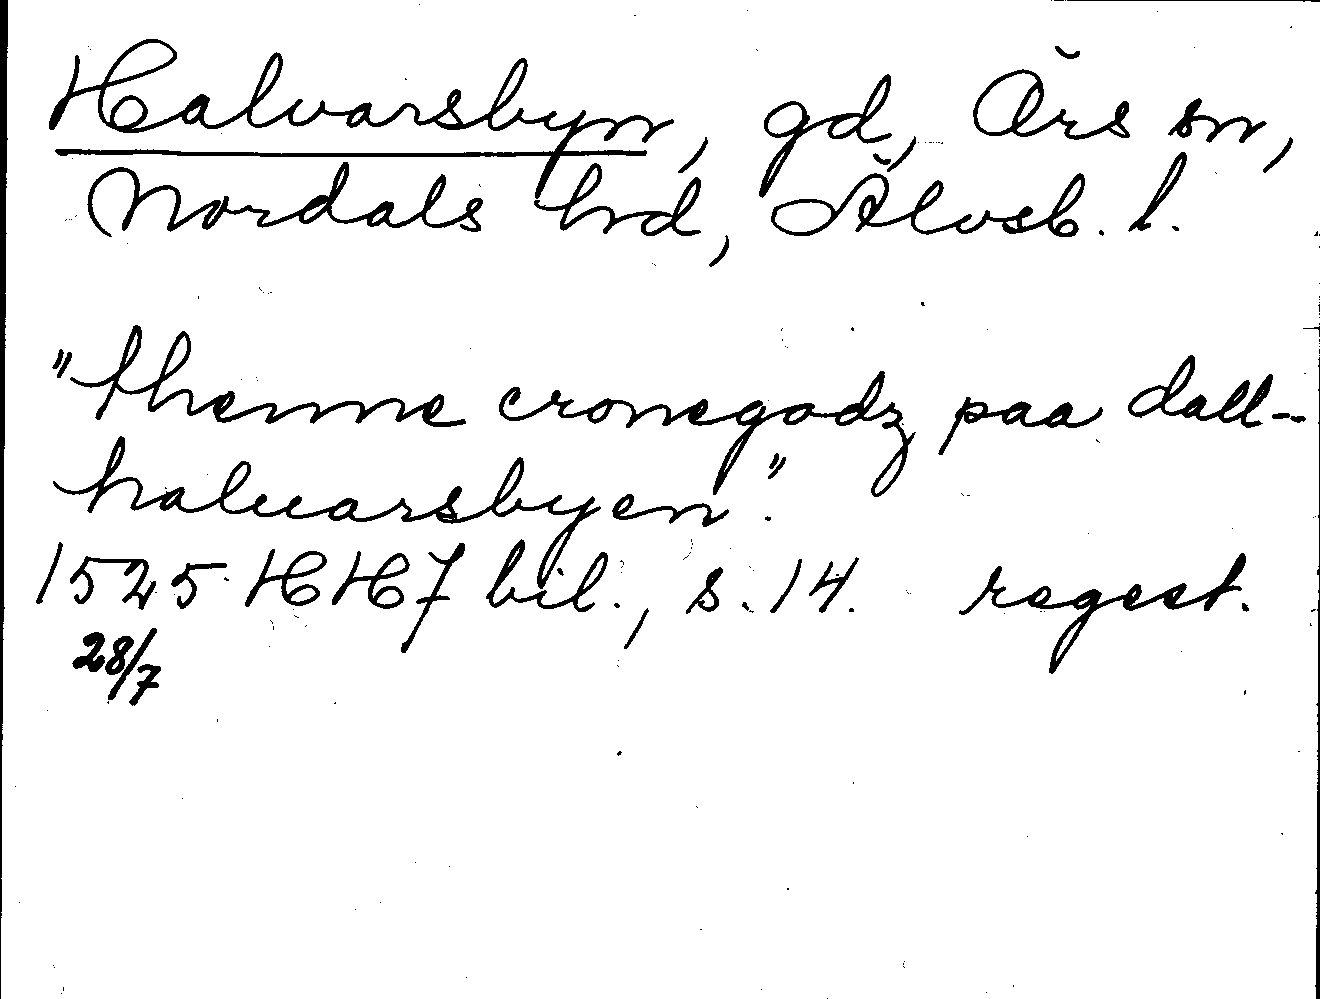 Halvarsbyn, gd, Örs sn,
Nordals hrd, Älvsb. l.
"thenne cronegodz paa dall--
haluarsbyen".
1525 HH7 bil., s. 14. regest.
28/7